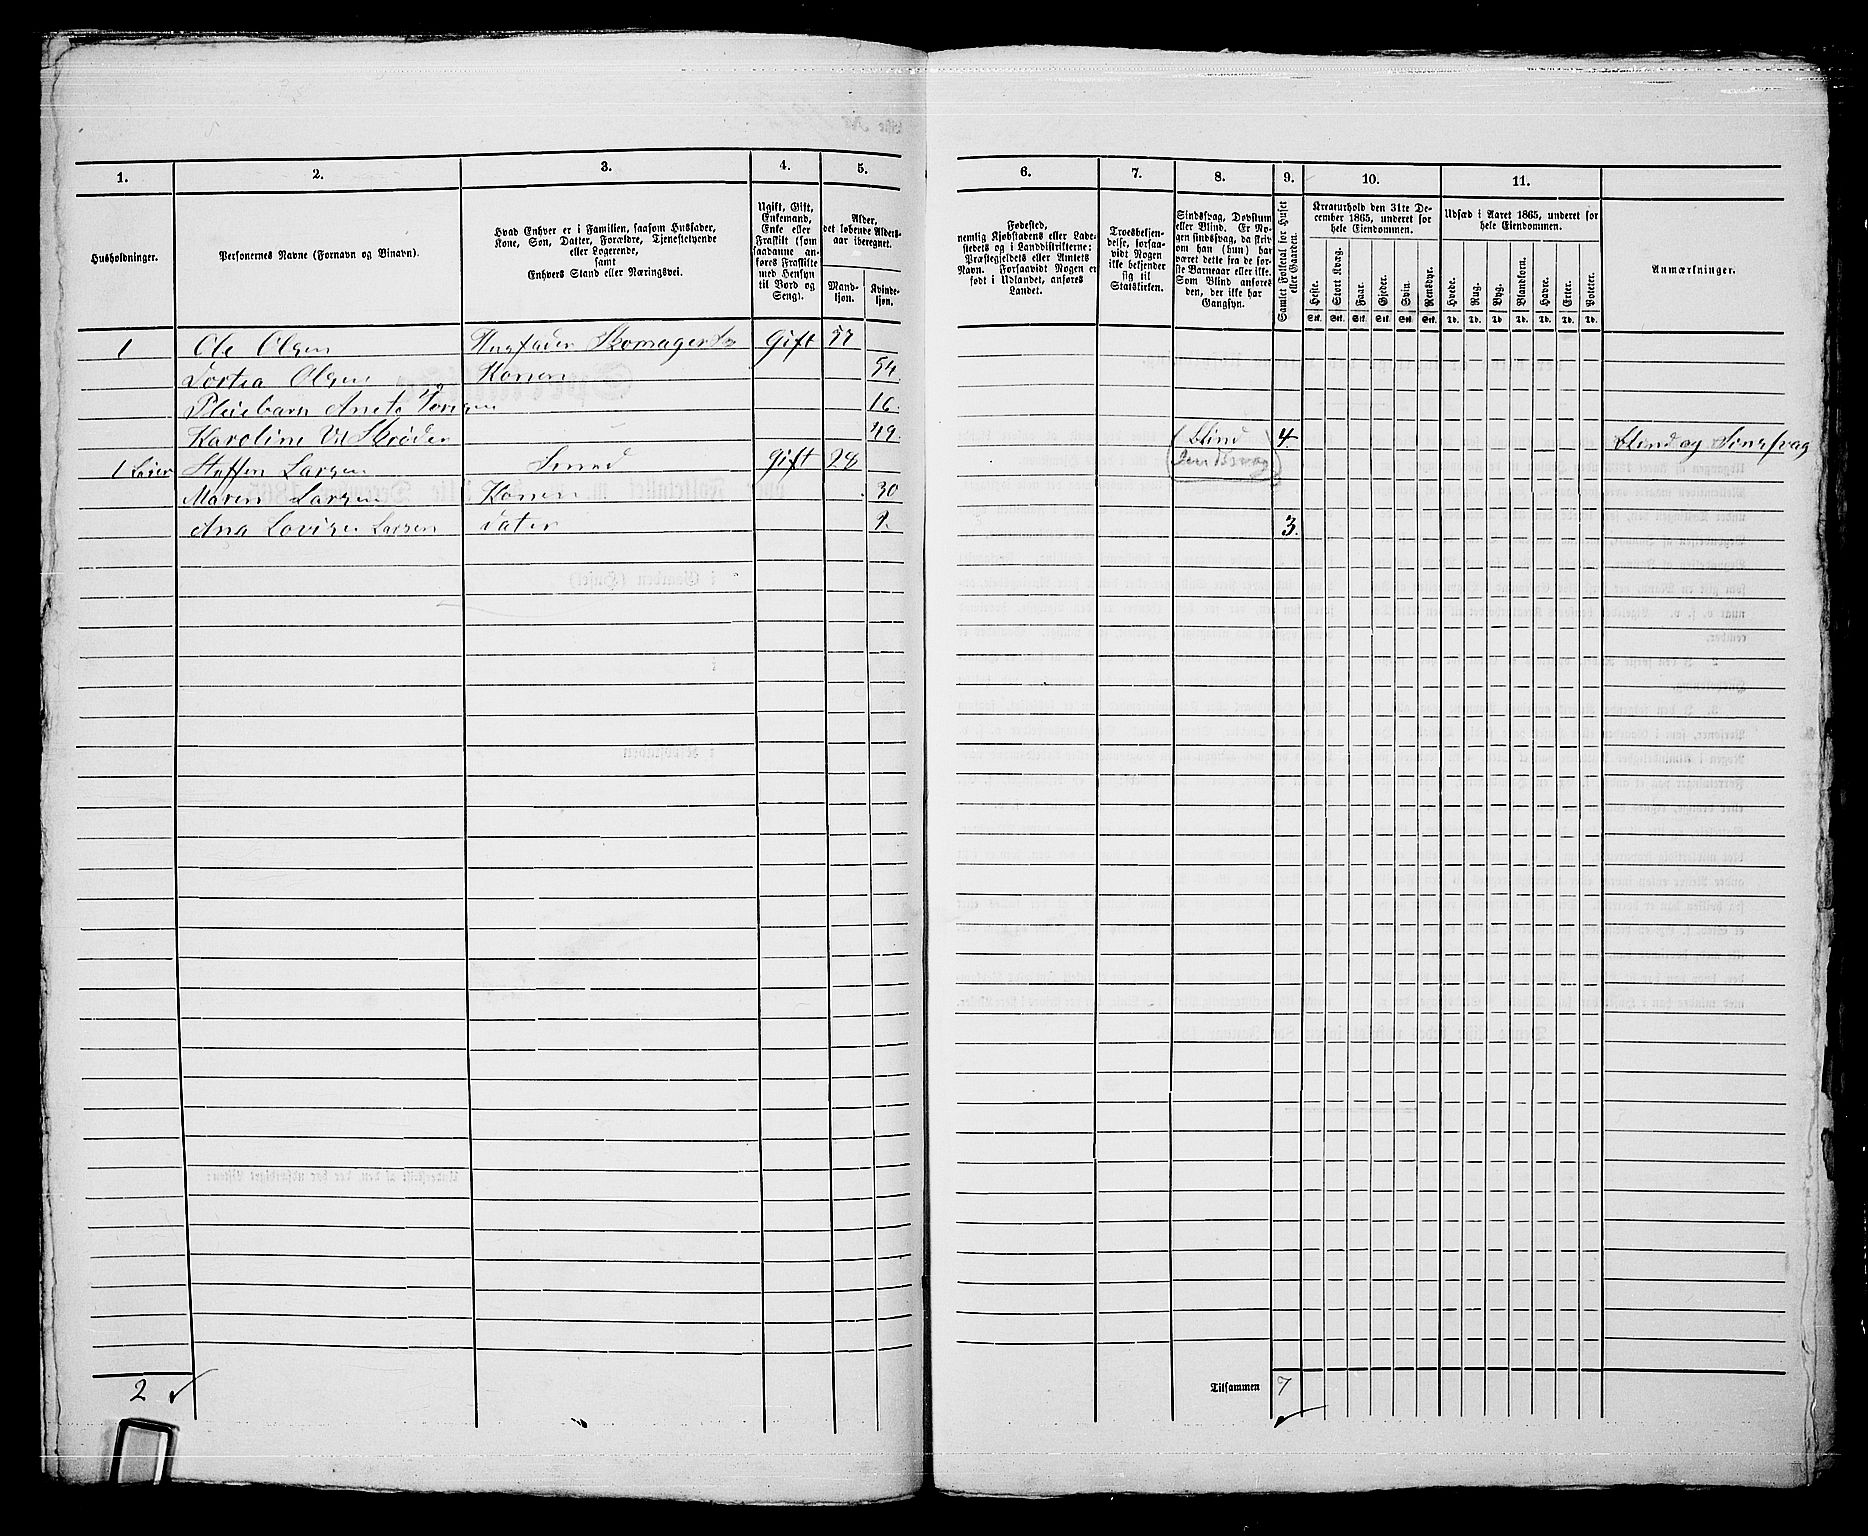 1. 2. 3. 4. 5. 6. 7. 8. 9. 10. 11.
Husholdninger.
Personernes Navne (Fornavn og Binavn).
Hvad Enhver er i Familien, saasom Husfader,
Kone, Søn, Datter, Forældre, Tjenestetyende
eller Logerende,
samt
Enhvers Stand eller Næringsvei.
Ugift, Gift,
Enkemand,
Enke eller
Fraskilt (som
saadanne an-
føres Fraskilte
med Hensyn
til Bord og
Seng).
Alder,
det løbende Alders-
aar iberegnet.
Mand-
kjøn.
Kvinde-
kjøn.
Fødested,
nemlig Kjøbstadens eller Lade-
stedets og i Landdistrikterne:
Præstegjeldets eller Amtets
Navn. Forsaavidt Nogen er
født i Udlandet, anføres
Landet.
Troesbekjen-
delse, forsaa-
vidt Nogen
ikke bekjender
sig til
Statskirken.
Sindssvag, Døvstum
eller Blind. Er No-
gen sindssvag, da skriv
om han (hun) har
været dette fra de før-
ste Barneaar eller ikke.
Som Blind anføres
den, der ikke har
Gangsyn.
Samlet Folketal for Huset
eller Gaarden.
Kreaturhold den 31te De-
cember 1865, underet for
hele Eiendommen.
Heste. Stort Kvæg. Faar. Gjeder. Svin. Rensdyr.
Stk. Stk. Stk. Stk. Stk. Stk.
Udsæd i Aaret 1865, underet for
hele Eiendommen.
Hvede. Rug. Byg. Blandkorn. Havre. Erter. Poteter.
Td. Td. Td. Td. Td. Td. Td.
Anmærkninger.
1 Ole Olsen Husfader Skomager Gift 57
Olsen Konen 54.
Pleiebarn 16.
Karoline 49. blind 4. blind og
1 Larsen Smed Gift 28
Maren Larsen Konen 30
Ana Lovise Larsen 3.
2
Tilsammen 7